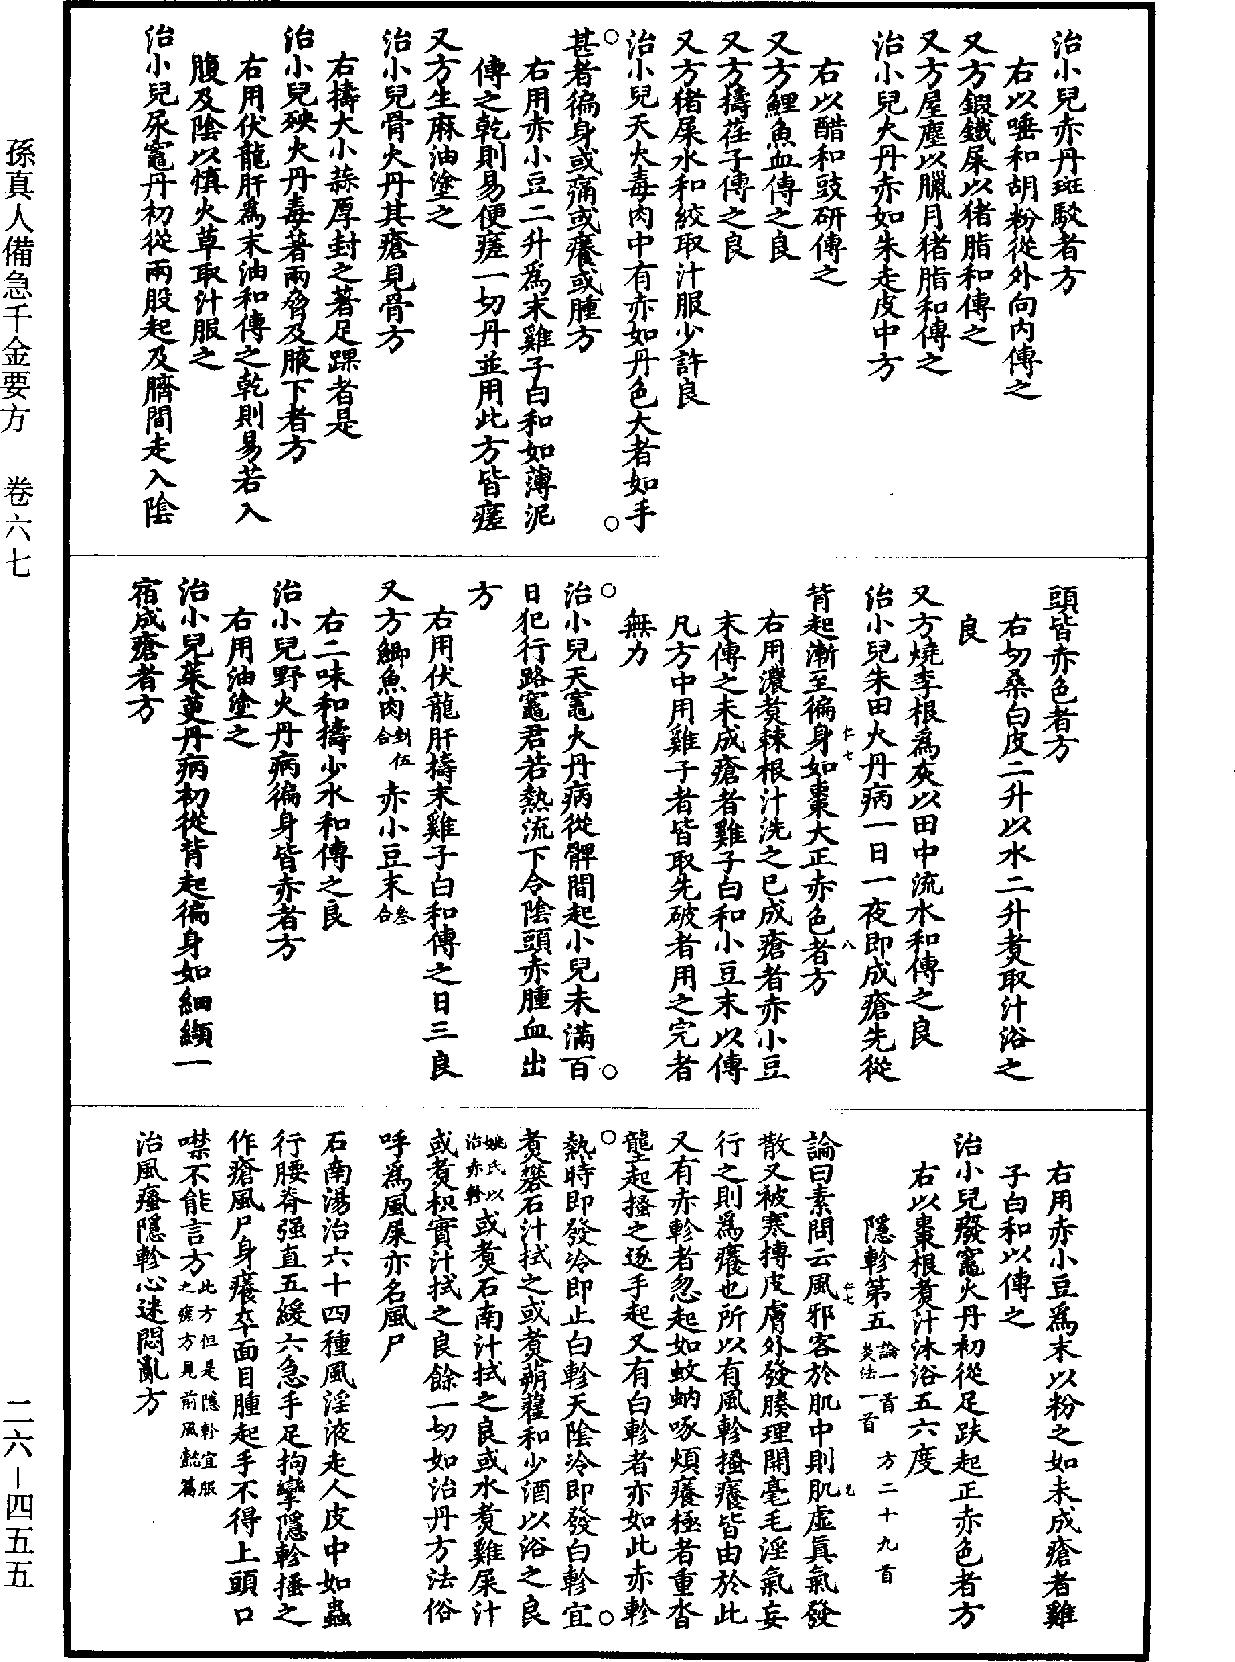 治小兒赤丹斑駁者方
右以唾和胡粉從外向内傅之
又方鍛鐵屎以猪脂和傅之
又方屋塵以臘月猪脂和傅之
治小兒火丹赤如朱走皮中方
右以醋和豉研傅之
又方鯉魚血傅之良
又方擣荏子傅之良
又方猪屎水和絞取汁服少許良
治小兒天火毒肉中有赤如丹色大者如手
甚者徧身或痛或癢或腫方
右用赤小豆二升爲末雞子白和如薄泥
傅之乾則易便瘥一切丹並用此方皆瘥
又方生麻油塗之
治小兒骨火丹其瘡見骨方
右擣大小蒜厚封之著足踝者是
治小兒殃火丹毒著兩脅及腋下者方
右用伏龍肝爲末油和傅之乾則易若入
腹及陰以慎火草取汁服之
治小兒尿竈丹初從兩股起及臍間走入陰
頭皆赤色者方
右切桑白皮二升以水二升煑取汁浴之
良
又方燒李根爲灰以田中流水和傅之良
治小兒朱田火丹病一日一夜即成瘡先從
背起漸至徧身如棗大正赤色者方
右用濃煑棘根汁洗之已成瘡者赤小豆
末傅之未成瘡者雞子白和小豆末以傅
凡方中用雞子者皆取先破者用之完者
無力
治小兒天竈火丹病從髀間起小兒未滿百
日犯行路竈君若熱流下令陰頭赤腫血出
方
右用伏龍肝擣末雞子白和傅之日三良
又方鯽魚肉剉伍合 赤小豆末叁合
右二味和擣少水和傅之良
治小兒野火丹病徧身皆赤者方
右用油塗之
治小兒茱萸丹病初從背起徧身如細纈一
宿成瘡者方
右用赤小豆爲末以粉之如未成瘡者雞
子白和以傅之
治小兒廢竈火丹初從足趺起正赤色者方
右以棗根煑汁沐浴五六度
隱軫第五 論一首 方二十九首 灸法一首
論曰素問云風邪客於肌中則肌虛眞氣發
散又被寒搏皮膚外發腠理開毫毛淫氣妄
行之則爲癢也所以有風軫搔癢皆由於此
又有赤軫者忽起如蚊蚋啄煩癢極者重沓
壟起搔之逐手起又有白軫者亦如此赤軫
熱時即發冷即止白軫天陰冷即發白軫宜
煑礬石汁拭之或煑蒴藋和少酒以浴之良
姚氏以治赤軫 或煑石南汁拭之良或水煑雞屎汁
或煑枳實汁拭之良餘一切如治丹方法俗
呼爲風屎亦名風尸
石南湯治六十四種風淫液走人皮中如蟲
行腰脊强直五緩六急手足拘攣隱軫搔之
作瘡風尸身癢卒面目腫起手不得上頭口
噤不能言方 此方但是隱軫宜服之瘥方見前風懿篇
治風瘙隱軫心迷悶亂方
孫真人備急千金要方 卷六七
二六－四五五